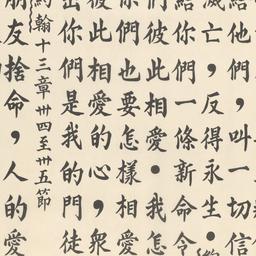 給他們，叫一切信
滅亡，反得永生。
給你們，一條新命令
們彼此相愛。我怎
你們也要怎樣，相愛
彼此相愛的心，眾
出你們是我的門徒
約翰十三章卅四至卅五節
朋友捨命，人的愛